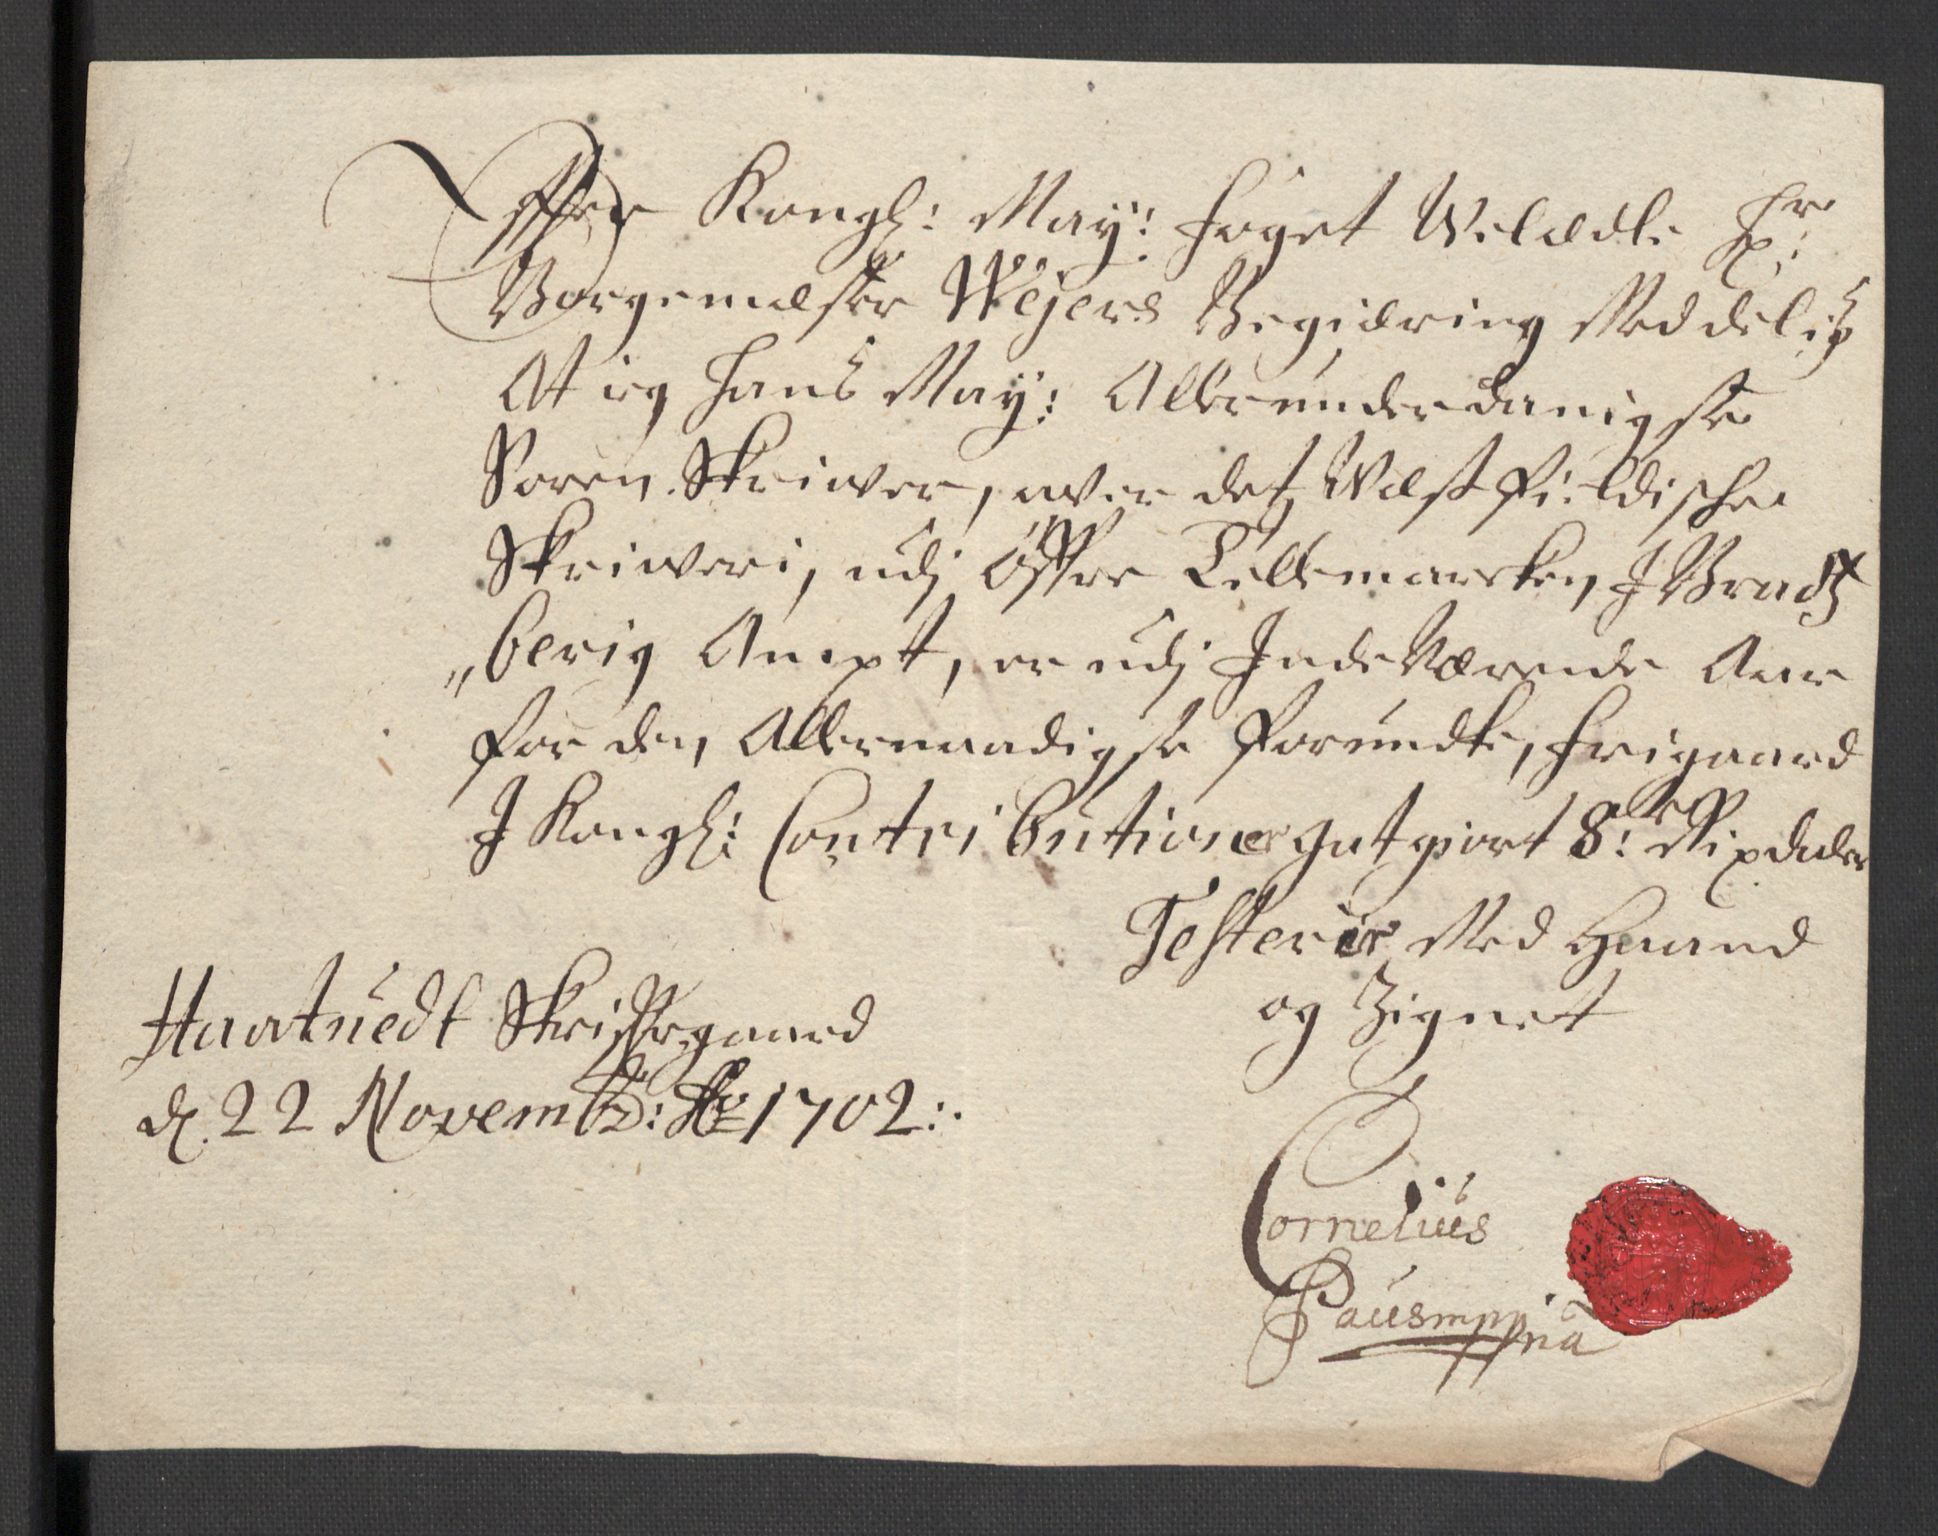 Effter Kongl: May: foget Welædle Hr:
Borgemæster Wejers Begiæring Meddelis
At ieg hans May: Allerunderdanigste
Soren Skriwer, ower det Væstfieldische
Skriweri, udj Øffre Tellemarcken J Bradtz
„berig Ampt, er udj Jndeværende Aar
for den Allernaadigste forundte, frigaard
J Kongl: Contributioner godtgiort 8: Rixdaler
Testerer Med Haand
og Zignet
Haatuedt Skriffergaard
d. 22 Novemb: Ao 1702:.
Cornelius
Paus mppria